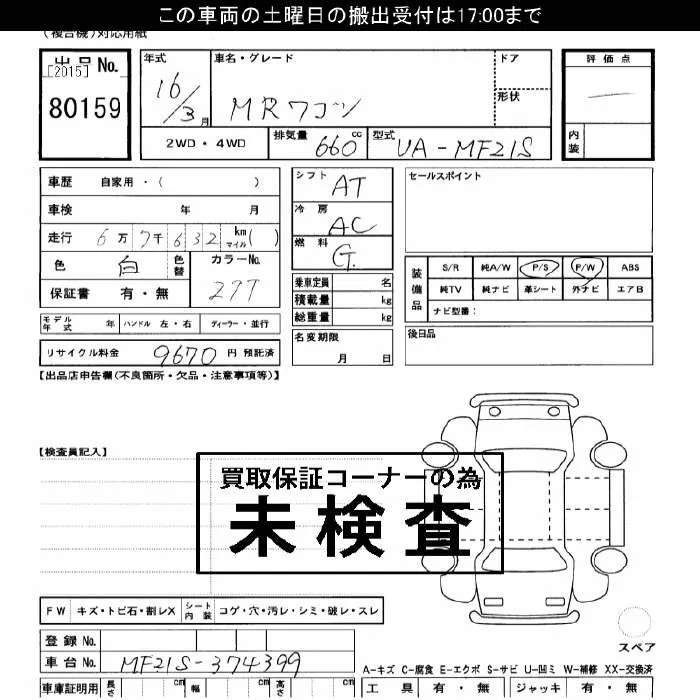 この車両の土曜日の搬出受付は17:00まで
(複合機)対応用紙
出品No.
[2015]
80159
年式
16/3月
車名・グレード
MRワゴン
ドア
形状
評価点
内装
2WD・4WD
排気量 660 cc
型式 UA-MF21S
車歴 自家用・( )
車検 年 月
走行 6万7千632 km マイル( )
色 白 色替 カラーNo.
27T
保証書 有・無
シフト AT
冷房 AC
燃料 G.
乗車定員 名
積載量 kg
総重量 kg
セールスポイント
装備品
S/R 純A/W P/S P/W ABS
純TV 純ナビ 革シート 外ナビ エアB
ナビ型番:
モデル年式 年 ハンドル 左・右 ディーラー・並行
リサイクル料金 9670 円 預託済
名変期限
月 日
後日品
【出品店申告欄(不良箇所・欠品・注意事項等)】
【検査員記入】
買取保証コーナーの為
未検査
FW キズ・トビ石・割レX シート内装 コゲ・穴・汚レ・シミ・破レ・スレ
スペア
登録No.
車台No. MF21S-374399
A-キズ C-腐食 E-エクボ S-サビ U-凹ミ W-補修 XX-交換済
車庫証明用 長さ cm 幅 cm 高さ cm
工具 有・無 ジャッキ 有・無